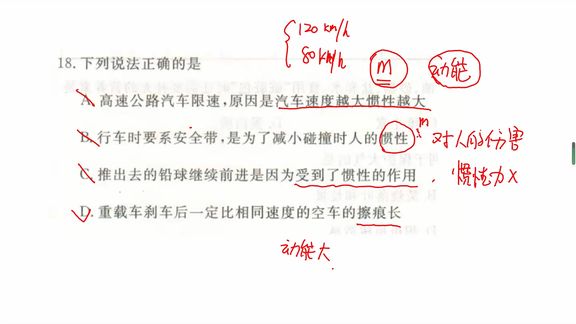 120 km/h
80 km/h
m 动能
18.下列说法正确的是
A.高速公路汽车限速,原因是汽车速度越大惯性越大
B.行车时要系安全带,是为了减小碰撞时人的惯性 m 对人的伤害
C.推出去的铅球继续前进是因为受到了惯性的作用 . 惯性力 X
D.重载车刹车后一定比相同速度的空车的擦痕长
动能大